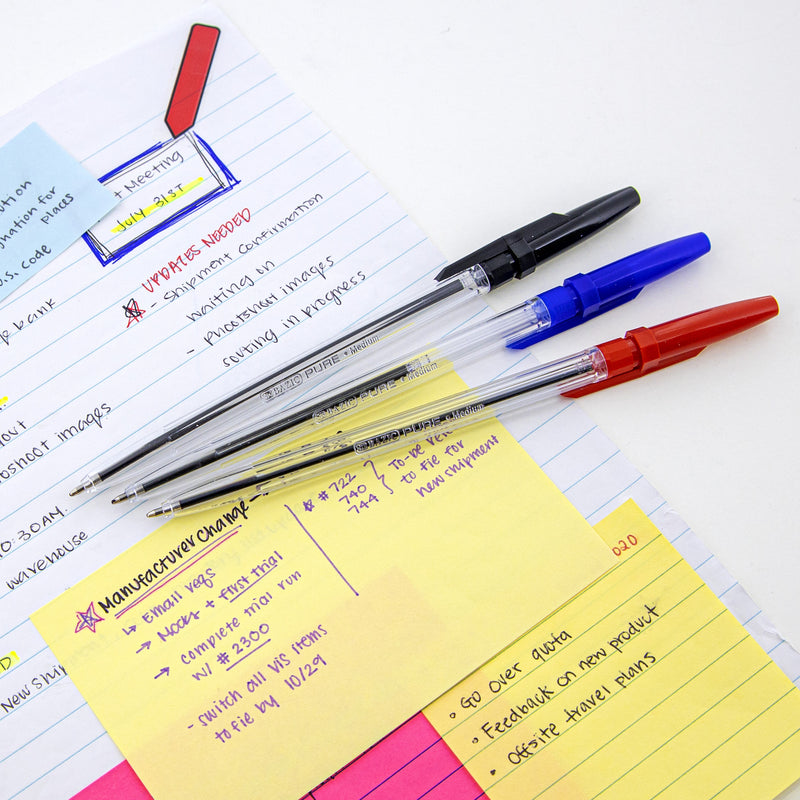 U.S. Code
Meeting
July 31ST
UPDATES NEEDED
- Shipment confirmation
waiting on
- photoshoot images
sorting in progress
bank
images
:30AM.
warehouse
BAZIC PURE • Medium
BAZIC PURE • Medium
BAZIC PURE • Medium
Manufacturer Change
↳ Email reqs
→ Mocks + first trial
→ complete trial run
w/ # 2300
- switch all vis items
to fie by 10/29
# 722
740
744
to-be
to fie for
new shipment
020
• Go over quota
• Feedback on new product
• Offsite travel plans
New